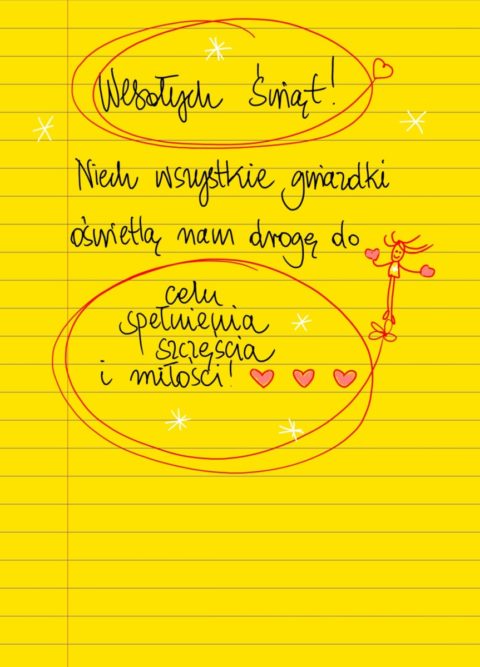 Wesołych Świąt!
Niech wszystkie gwiazdki
oświetlą nam drogę do
celu
spełnienia
szczęścia
i miłości!